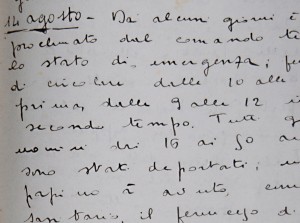 14 agosto - Da alcuni giorni è
proclamato dal comando te
lo stato di emergenza; 
di circolare dalle 10 alle
prima, dalle 9 alle 12 i
secondo tempo. Tutti g
uomini dai 15 ai 50 an
sono stati deportati; 
papà no è
santario, il permesso d